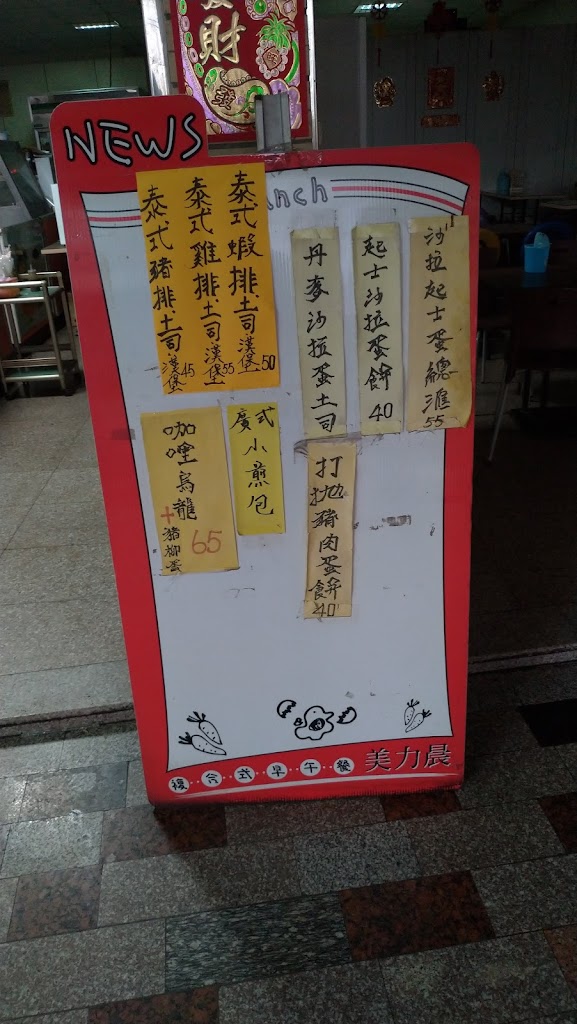 財
NEWS
nch
泰式蝦排土司漢堡50
泰式雞排土司漢堡55
泰式豬排土司漢堡45
沙拉起士蛋總滙55
起士沙拉蛋餅40
丹麥沙拉蛋土司
廣式小煎包
咖哩烏龍
+豬柳蛋
65
打拋豬肉蛋餅40
複合式早午餐 美力晨